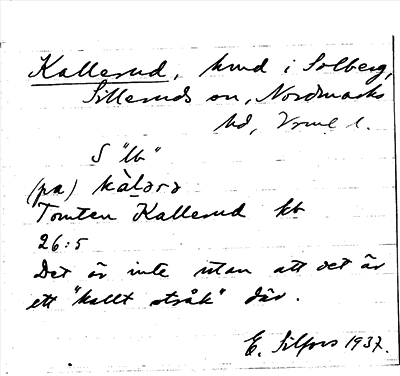 Kallerud, hmd i Solberg,
Silleruds sn, Nordmarks
hd, Vrml l.
S "lb"
(pa) kàlara
Tomten Kallerud kb
26:5
Det är inte utan att det är
ett "kallt stråk" där.
E. Silfors 1937.